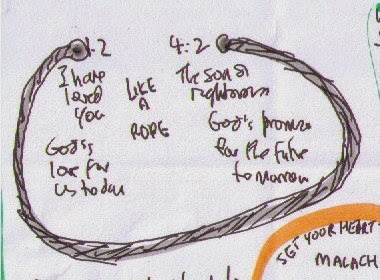 1:2
I have
loved
you
God's
love for
us today
LIKE
A
ROPE
4:2
The son of
righteousness
God's promise
for the future
tomorrow
SET YOUR HEART
MALACH